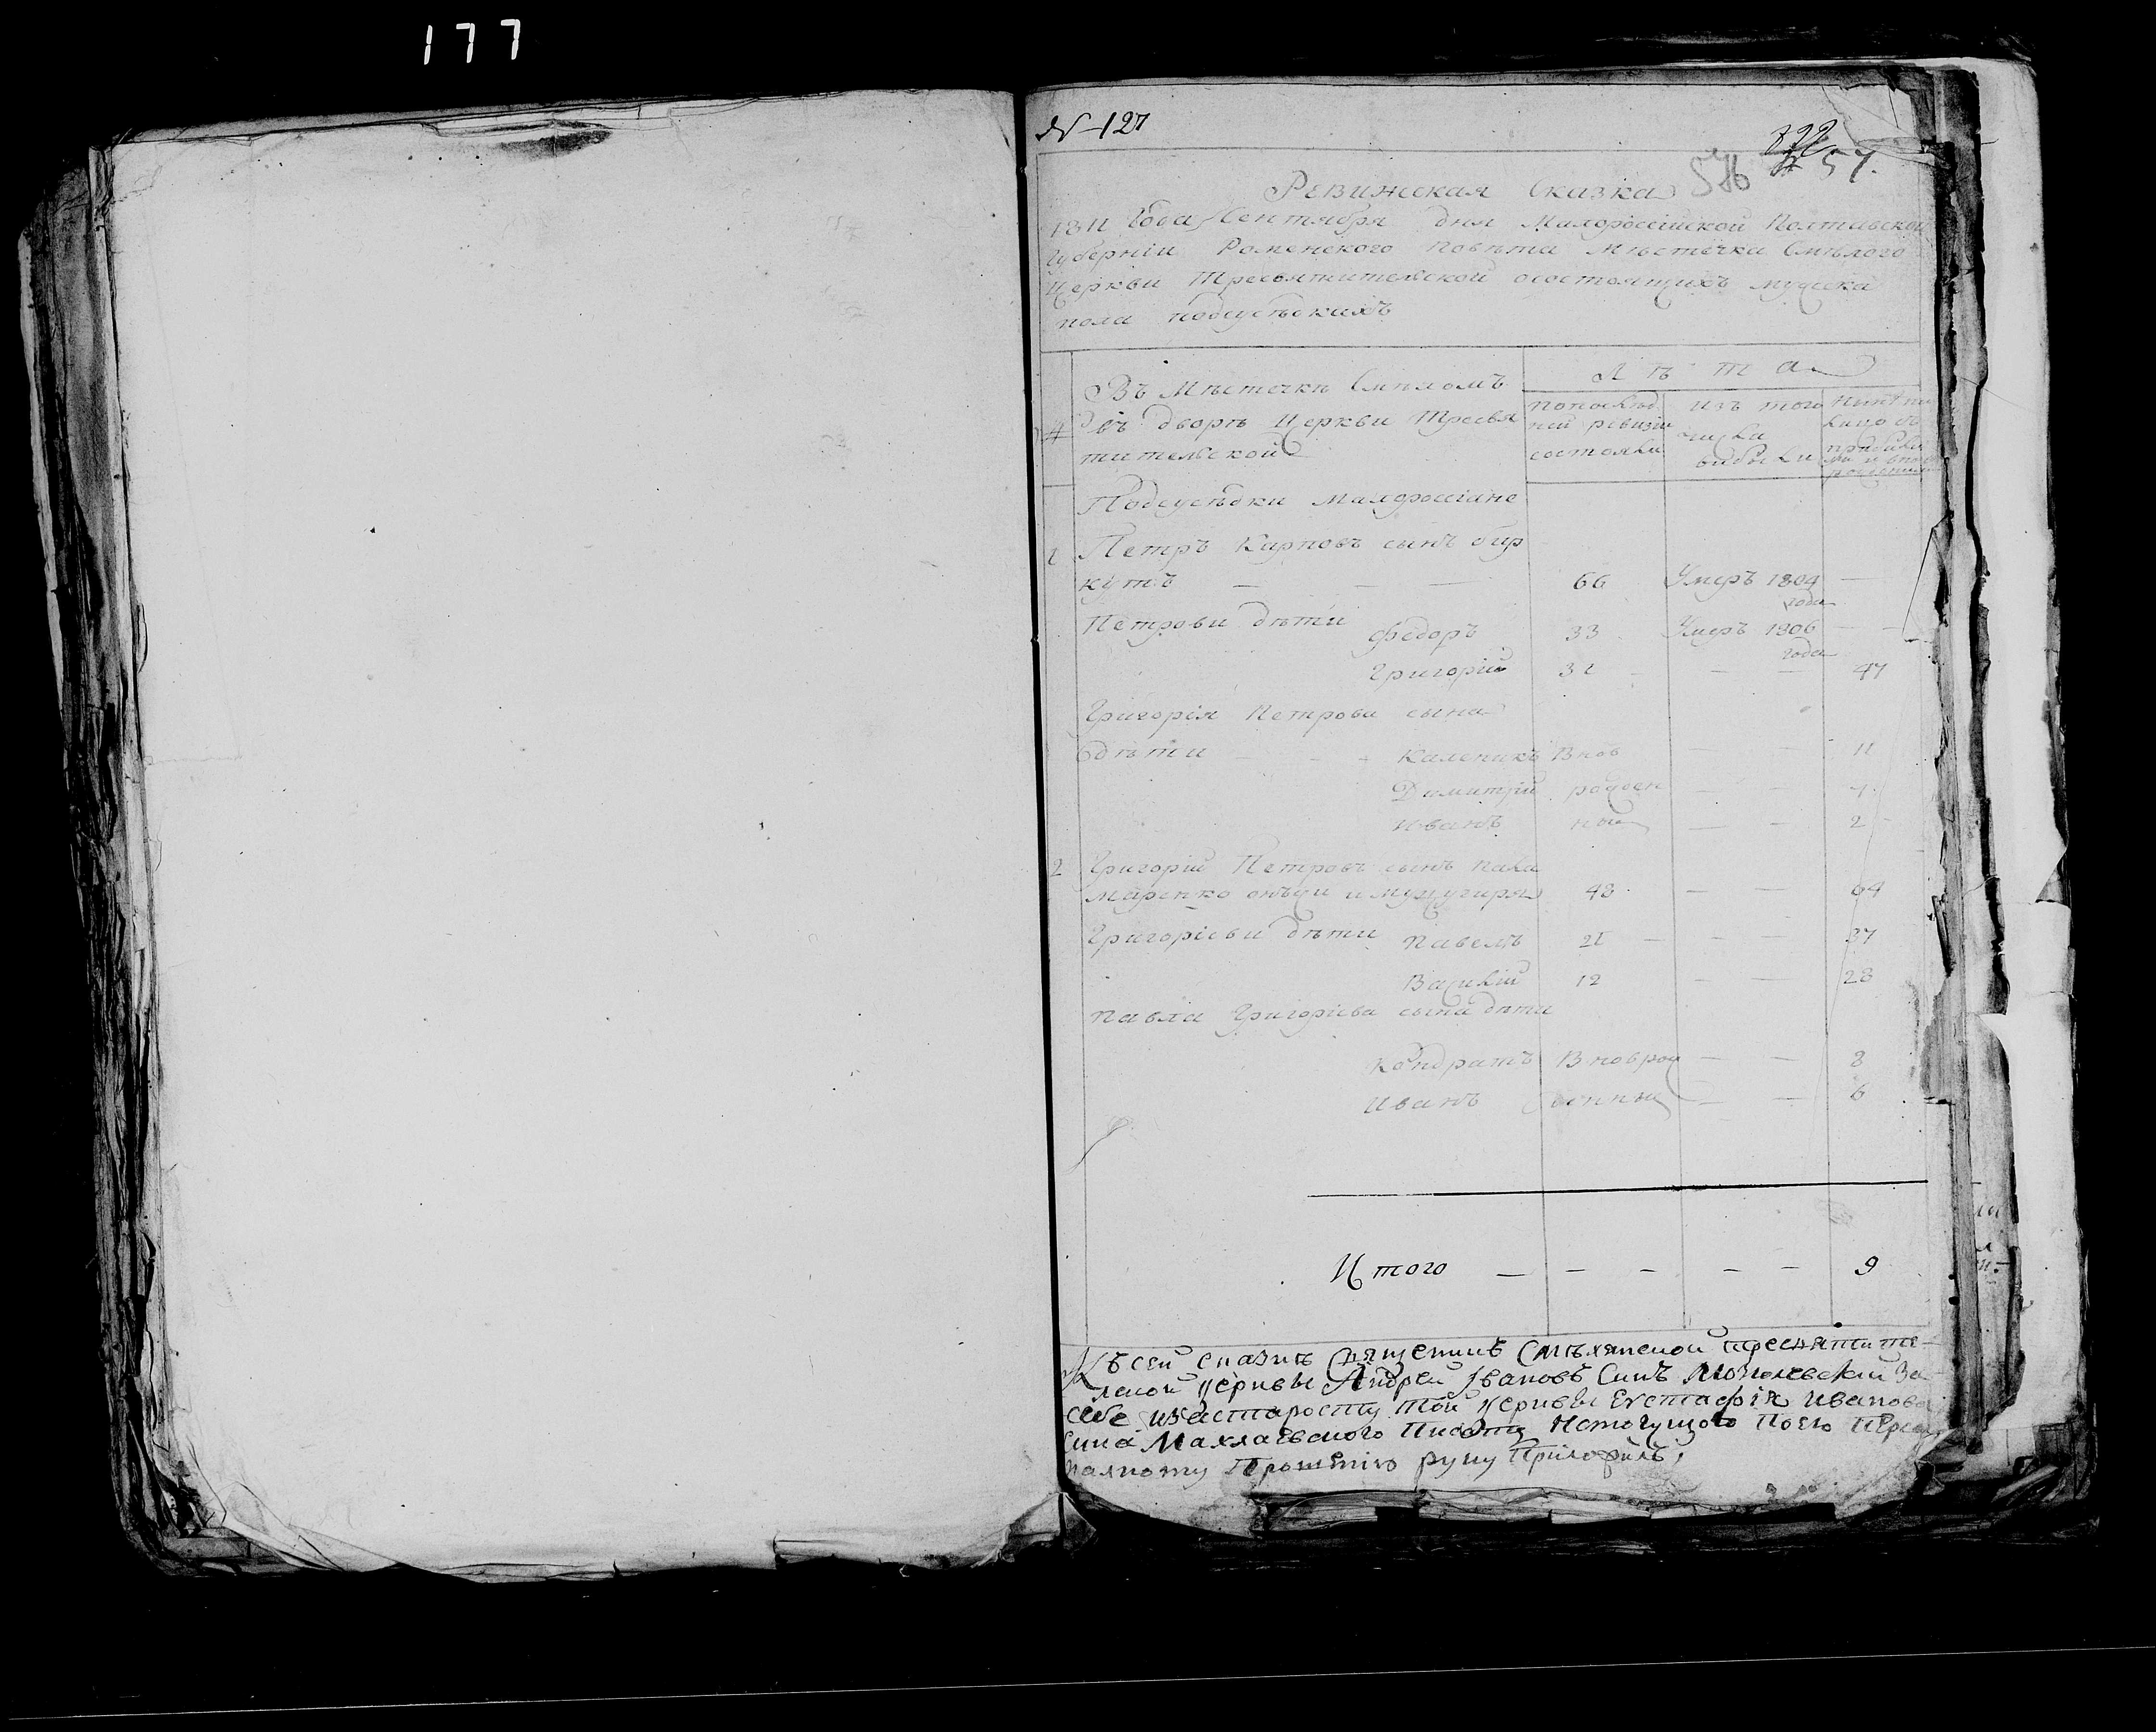 177
№ 127
822
576 57.
Ревижская Сказка
1811 Года Сентября дня Малороссійской Полтавской
Губерніи Роменского повѣта мѣстечка Смѣлого
Церкви Тресвятительской осостоящихъ мужеска
пола подсусѣдкахъ
Въ Мѣстечкѣ Смѣломъ
въ дворѣ Церкви Тресвя
тительской
Лѣта
Попослѣд
ней ревизіи
состояли
Изъ того
числа
выбыли
Подсусѣдки Малороссіане
1 Петръ Карповъ сынъ бир
кутъ — — — 66 Умеръ 1804 —
года
Петрови дѣти Федоръ 33 Умеръ 1806 — —
года
Григорій 31 — — — 47
Григорія Петрова сына
дѣти — — — Каленикъ Внов — — 11
Димитрій рожден — — 7
Иванъ ныи — — 2
2 Григорій Петровъ сынъ пала
маренко онъже и мужугиря 48 — — 64
Григоріеви дѣти Павелъ 21 — — — 37
Василій 12 — — 28
Павла Григоріева сына дѣти
Кондратъ Вноврож — — 8
Иванъ денныи — — 6
Итого — — — — — 9
Къ сей сказкѣ священикъ Смѣлянской тресвятите-
лской церкви Андрей Івановъ Синъ За
себе изастаросту той церкви Евстафія Иванова
Сина Махлаевского Писать Немогущого Поего
Прошенію руку Приложилъ,